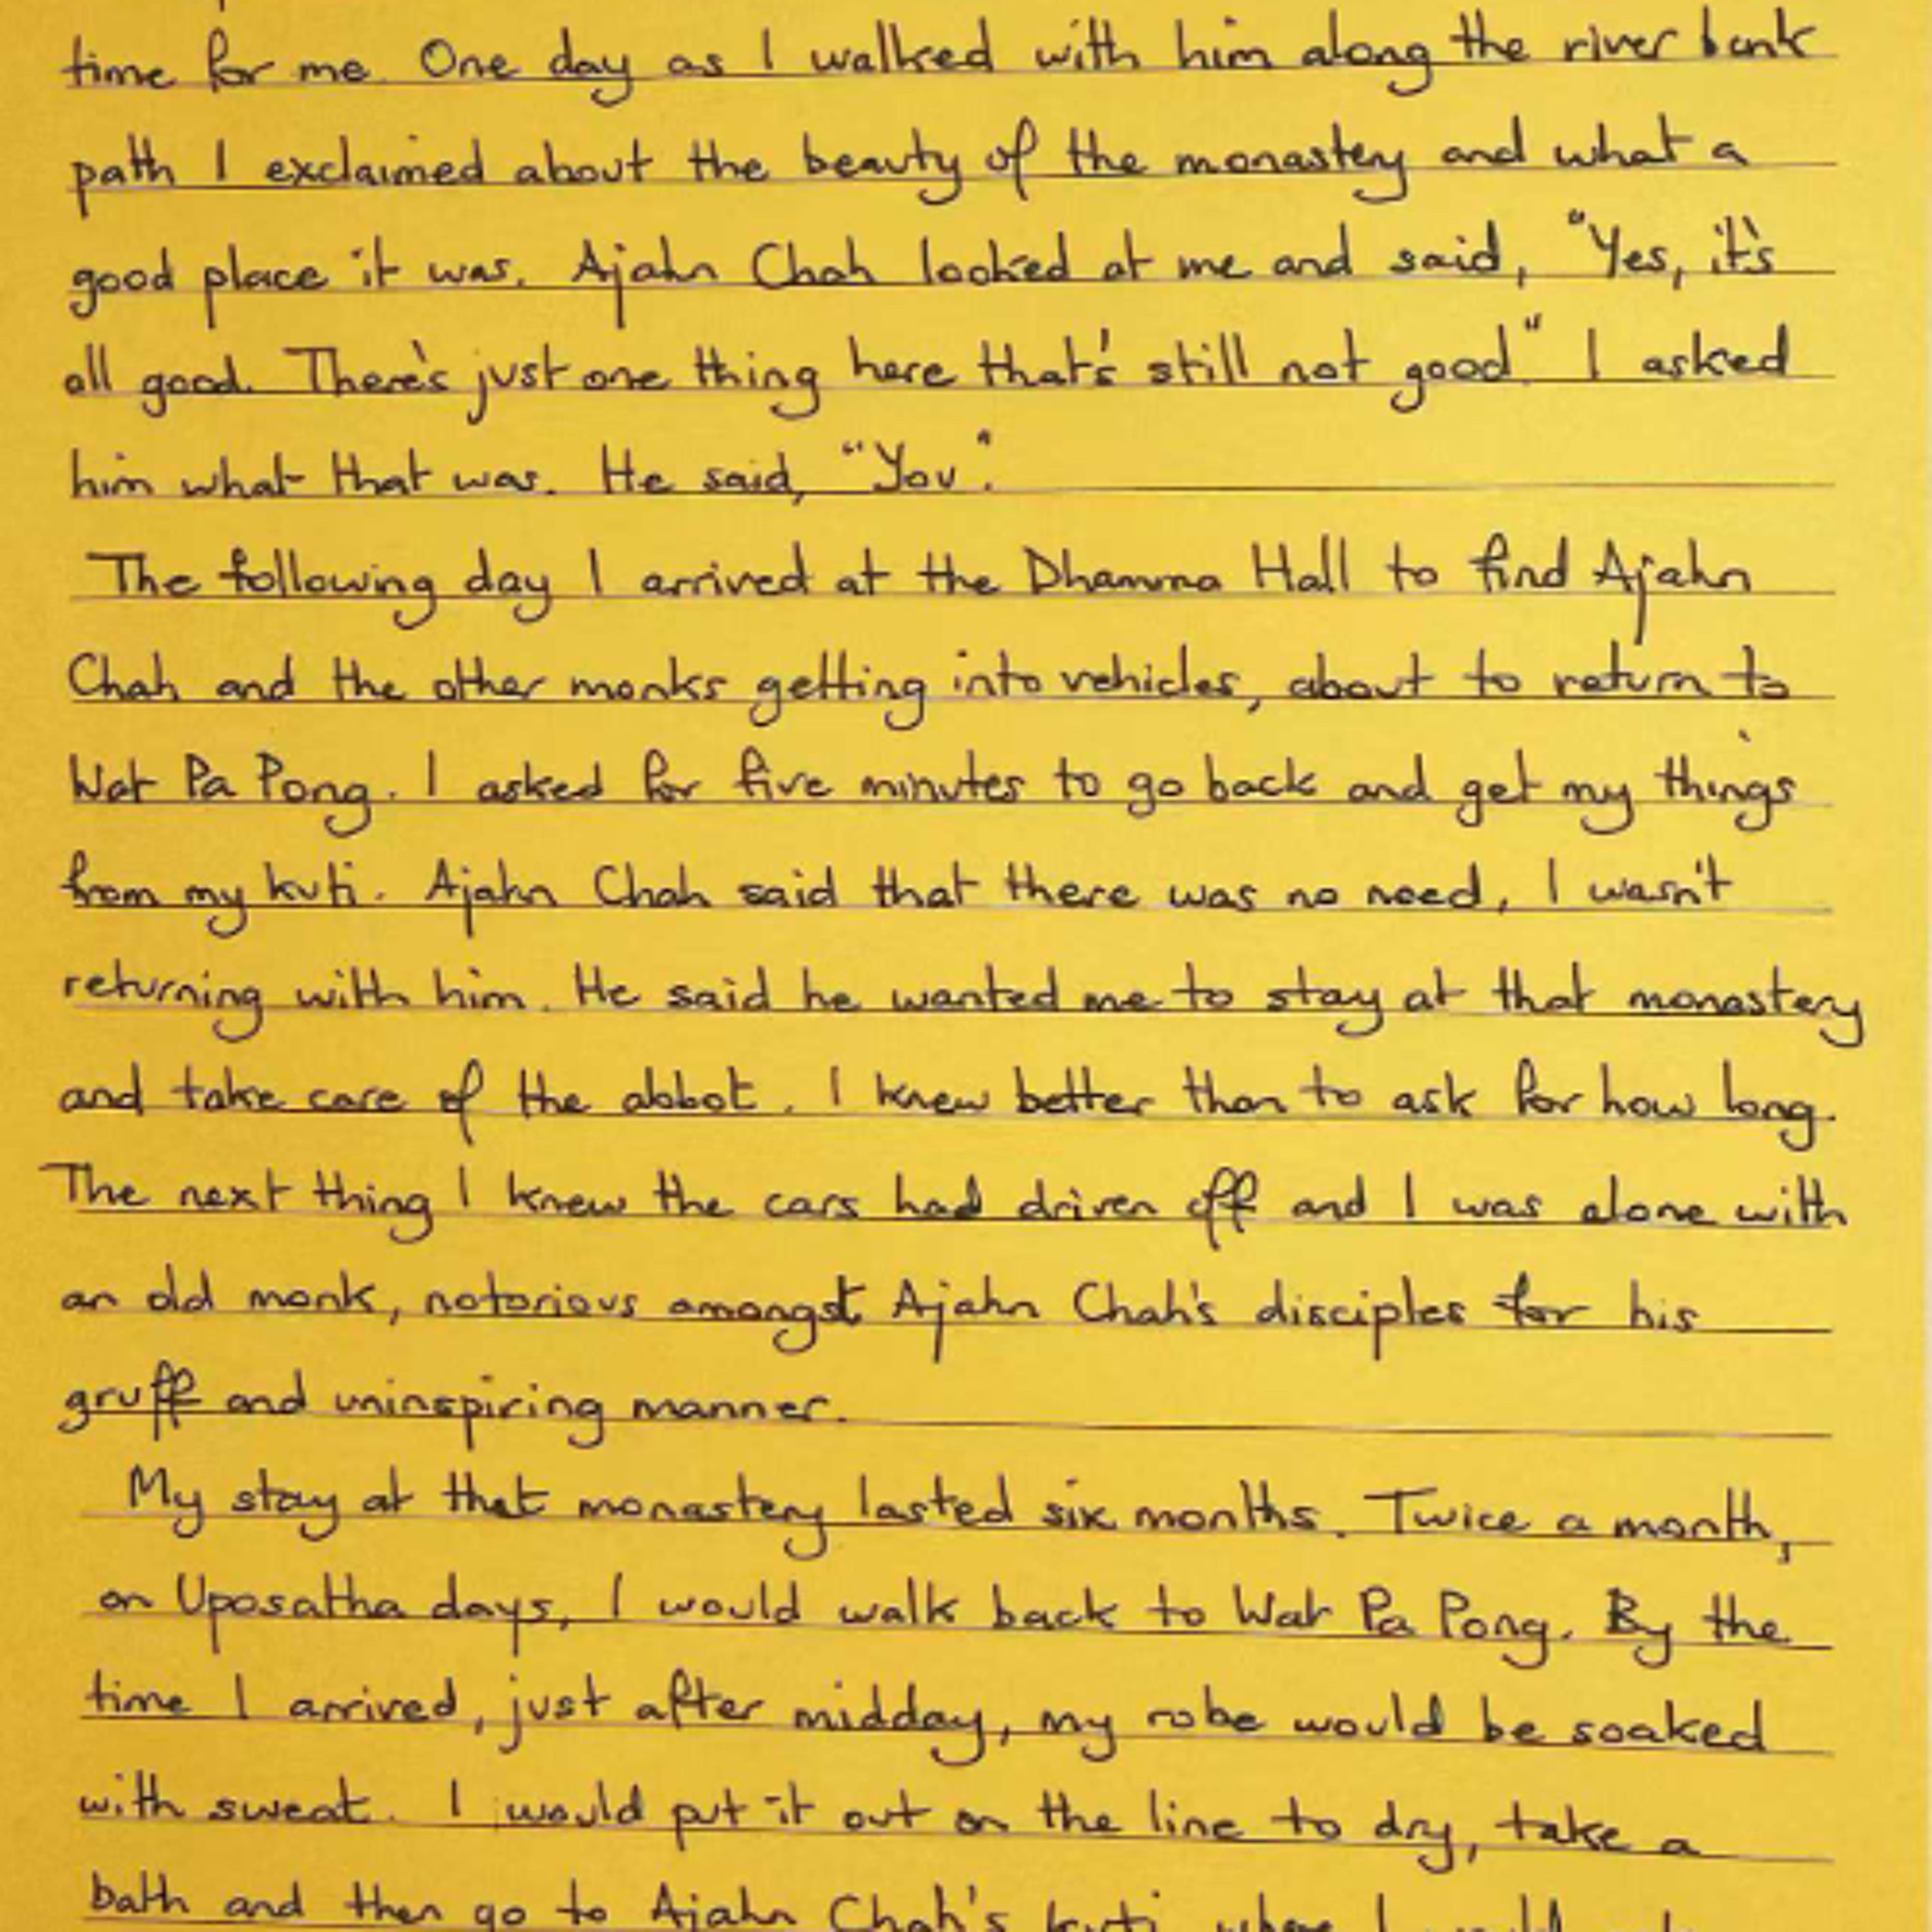 time for me. One day as I walked with him along the river bank
path I exclaimed about the beauty of the monastery and what a
good place it was. Ajahn Chah looked at me and said, "Yes, it's
all good. There's just one thing here that's still not good" I asked
him what that was. He said, "You".
The following day I arrived at the Dhamma Hall to find Ajahn
Chah and the other monks getting into vehicles, about to return to
Wat Pa Pong. I asked for five minutes to go back and get my things
from my kuti. Ajahn Chah said that there was no need, I wasn't
returning with him. He said he wanted me to stay at that monastery
and take care of the abbot. I knew better than to ask for how long.
The next thing I knew the cars had driven off and I was alone with
an old monk, notorious amongst Ajahn Chah's disciples for his
gruff and uninspiring manner.
My stay at that monastery lasted six months. Twice a month,
on Uposatha days, I would walk back to Wat Pa Pong. By the
time I arrived, just after midday, my robe would be soaked
with sweat. I would put it out on the line to dry, take a
bath and then go to Ajahn Chah's kuti, where I would